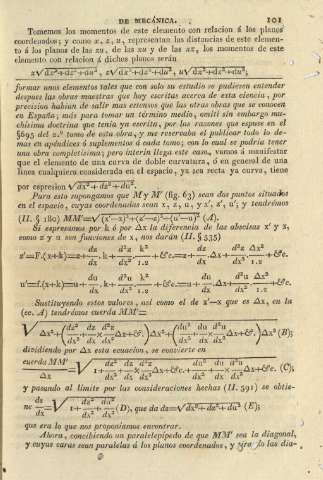 DE MECÁNICA. 101
Tomemos los momentos de este elemento con relacion á los planos
coordenados; y como x, z, u, representan las distancias de este elemen-
to á los planos de las zu, de las xu y de las xz, los momentos de este
elemento con relacion á dichos planos serán
x√dx²+dz²+du², z√dx²+dz²+du², u√dx²+dz²+du²;
formar unos elementos tales que con solo su estudio se pudiesen entender
despues las obras maestras que hay escritas acerca de esta ciencia, por
precision habian de salir mas estensos que las otras obras que se conocen
en España; mas para tomar un término medio, omití sin embargo mu-
chísima doctrina que tenia ya escrita, por las razones que espuse en el
§695 del 2.º tomo de esta obra, y me reservaba el publicar todo lo de-
mas en apéndices ó suplementos á cada tomo; con lo cual se podria tener
una obra completísima; pero ínterin llega este caso, vamos á manifestar
que el elemento de una curva de doble curvatura, ó en general de una
línea cualquiera considerada en el espacio, ya sea recta ya curva, tiene
por espresion √dx²+dz²+du².
Para esto supongamos que M y M' (fig. 63) sean dos puntos situados
en el espacio, cuyas coordenadas sean x, z, u, y x', z', u'; y tendrémos
(II. § 180) MM'=√(x'−x)²+(z'−z)²+(u'−u)² (A).
Si espresamos por k ó por Δx la diferencia de las abscisas x' y x,
como z y u son funciones de x, nos darán (II. § 535)
z'=F.(x+k)=z+dz/dx.k+d²z/dx².k²/1.2+&c.=z+dz/dx.Δx+d²z/dx².Δx²/1.2+&c.
u'=f.(x+k)=u+du/dx.k+d²u/dx².k²/1.2+&c.=u+du/dx.Δx+d²u/dx².Δx²/1.2+&c.
Sustituyendo estos valores, así como el de x'−x que es Δx, en la
(ec. A) tendrémos cuerda MM'=
√Δx²+(dz²/dx²+dz/dx×d²z/dx².Δx+&c.)Δx²+(du²/dx²+du/dx×d²u/dx².Δx+&c.)Δx² (B);
dividiendo por Δx esta ecuacion, se convierte en
cuerda MM'/Δx=√1+dz²/dx²+dz/dx×d²z/dx².Δx+&c.+du²/dx²+du/dx×d²u/dx².Δx+&c. (C);
y pasando al límite por las consideraciones hechas (II. 591) se obtie-
ne ds/dx=√1+dz²/dx²+du²/dx² (D), que da ds=√dx²+dz²+du² (E);
que era lo que nos proponíamos encontrar.
Ahora, concibiendo un paralelepípedo de que MM' sea la diagonal,
y cuyas caras sean paralelas á los planos coordenados, y las dia-